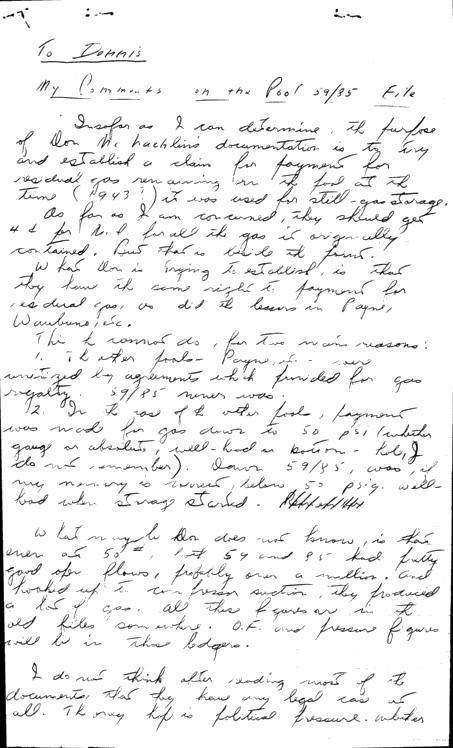 To Dennis
My Comments on the Pool 59/85 File
Insofar as I can determine, th purpose
of Don Mc Lachlin's documentation is to try
and establish a claim for payment for
residual gas remaining in th pool at th
time (1943?) it was used for still-gas storage.
As far as I am concerned, they should get
4 ¢ per M.c.f. for all th gas it originally
contained. But that is beside th point.
What Don is trying to establish, is that
they have th same right to payment for
residual gas, as did th lessors in Payne,
Waubuno, etc.
This h cannot do, for two main reasons:
1. Th other pools - Payne, etc - were
unitized by agreements which provided for gas
royalty. 59/85 never was.
2. In th case of th other pools, payment
was made for gas down to 50 psi (whether
gauge or absolute, well-head or bottom-hole, I
do not remember). Dawn 59/85, was, if
my memory is correct, below 50 psig. well-
head when storage started.
What maybe Don does not know, is that
even at 50#, both 59 and 85 had pretty
good open flows, probably over a million. And
hooked up to compressor suction, they produced
a lot of gas. All these figures are in th
old files somewhere. O.F. and pressure figures
will be in those ledgers.
I do not think after reading most of th
documents, that they have any legal case at
all. Th only hope is political pressure. Whether